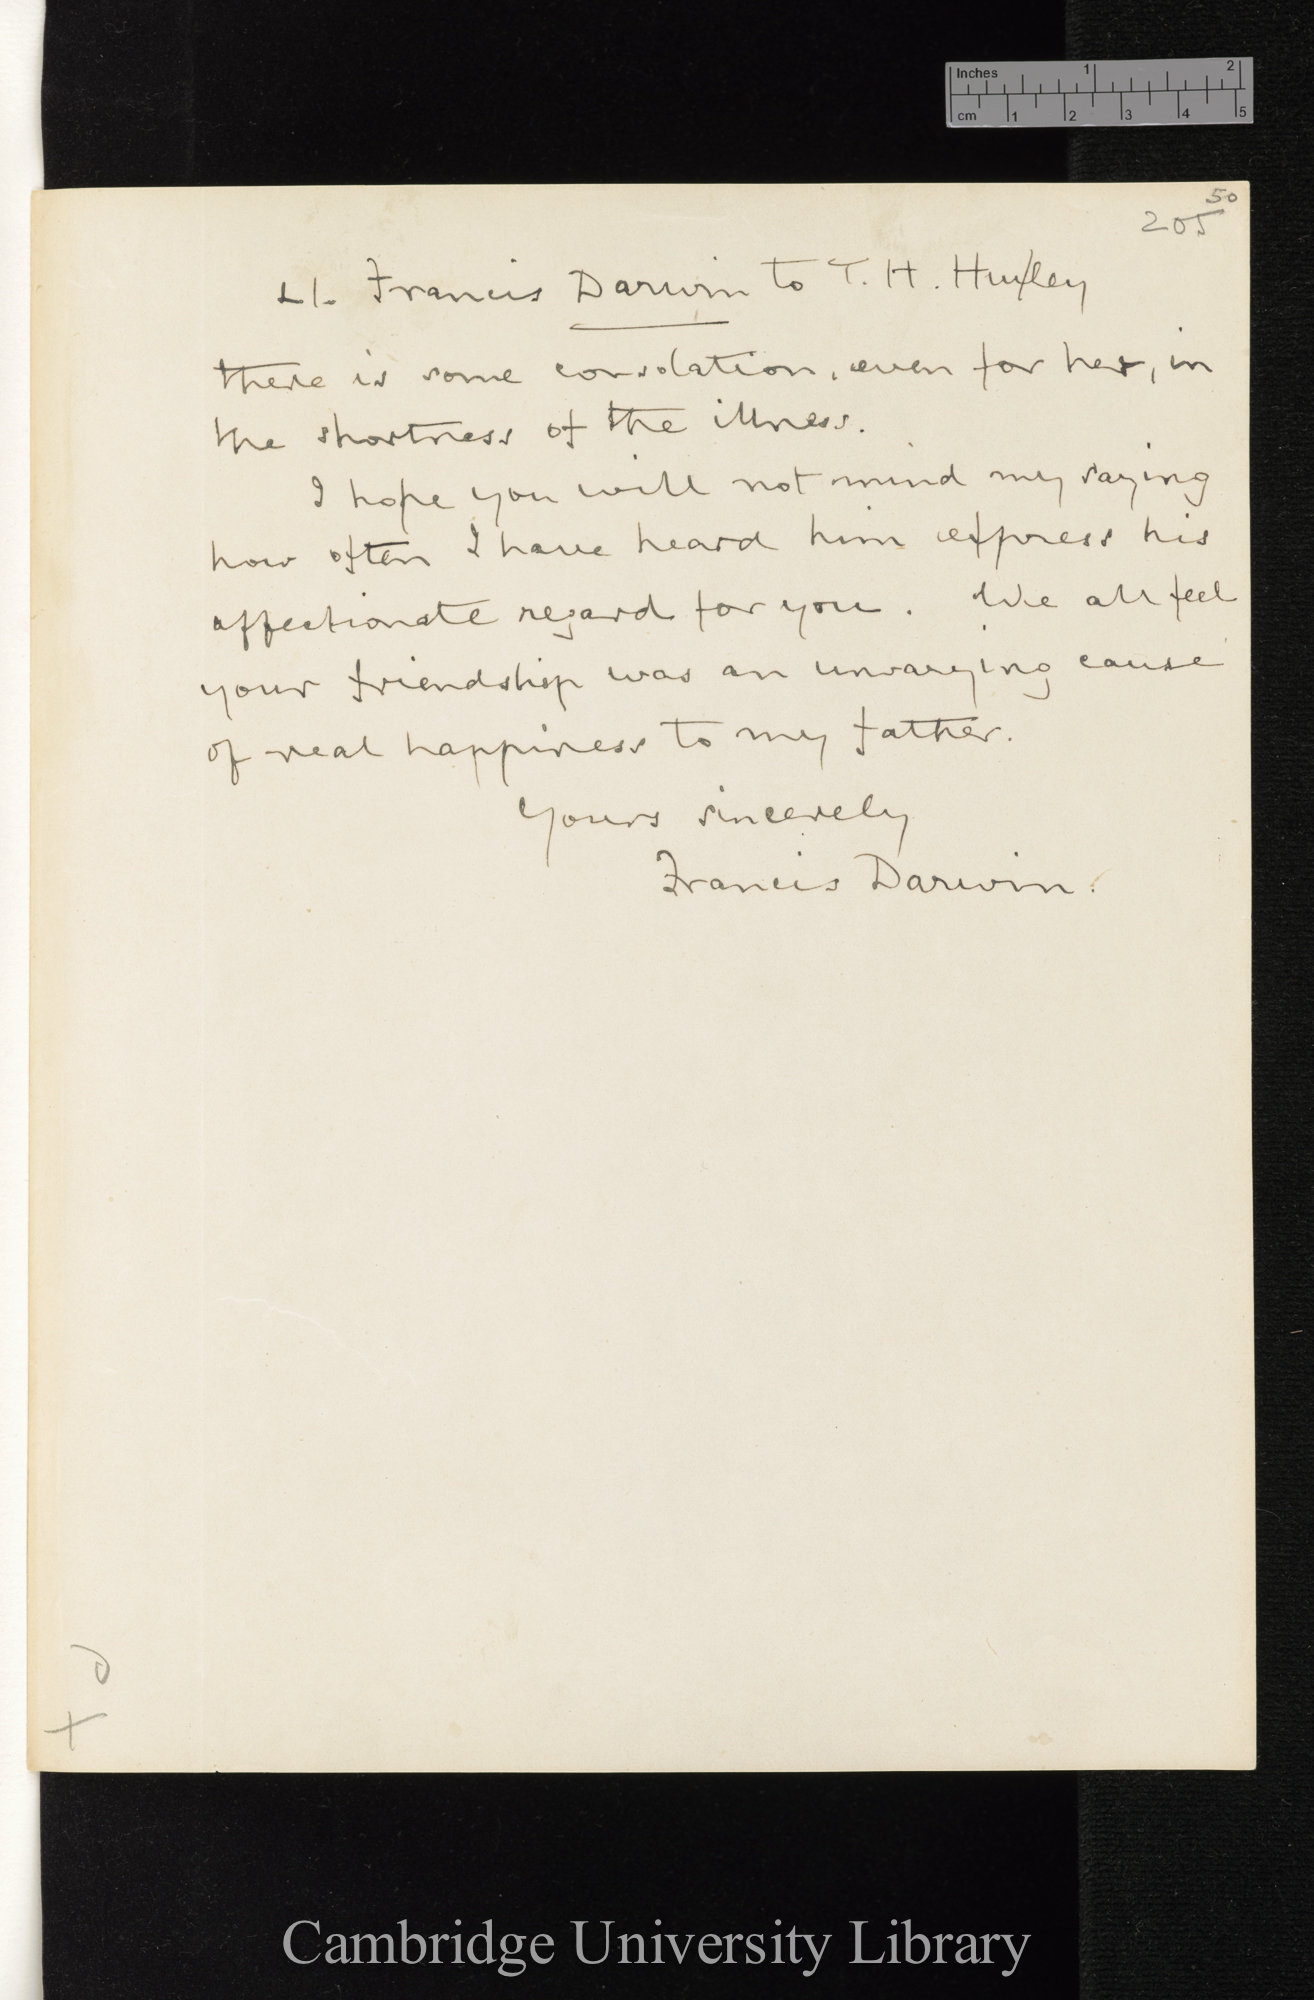 Inches 1 2
cm 1 2 3 4 5
50
205
Francis Darwin to T. H. Huxley
there is some consolation, even for her, in
the shortness of the illness.
I hope you will not mind my saying
how often I have heard him express his
affectionate regard for you. We all feel
your friendship was an unvarying cause
of real happiness to my father.
Yours sincerely
Francis Darwin.
Cambridge University Library